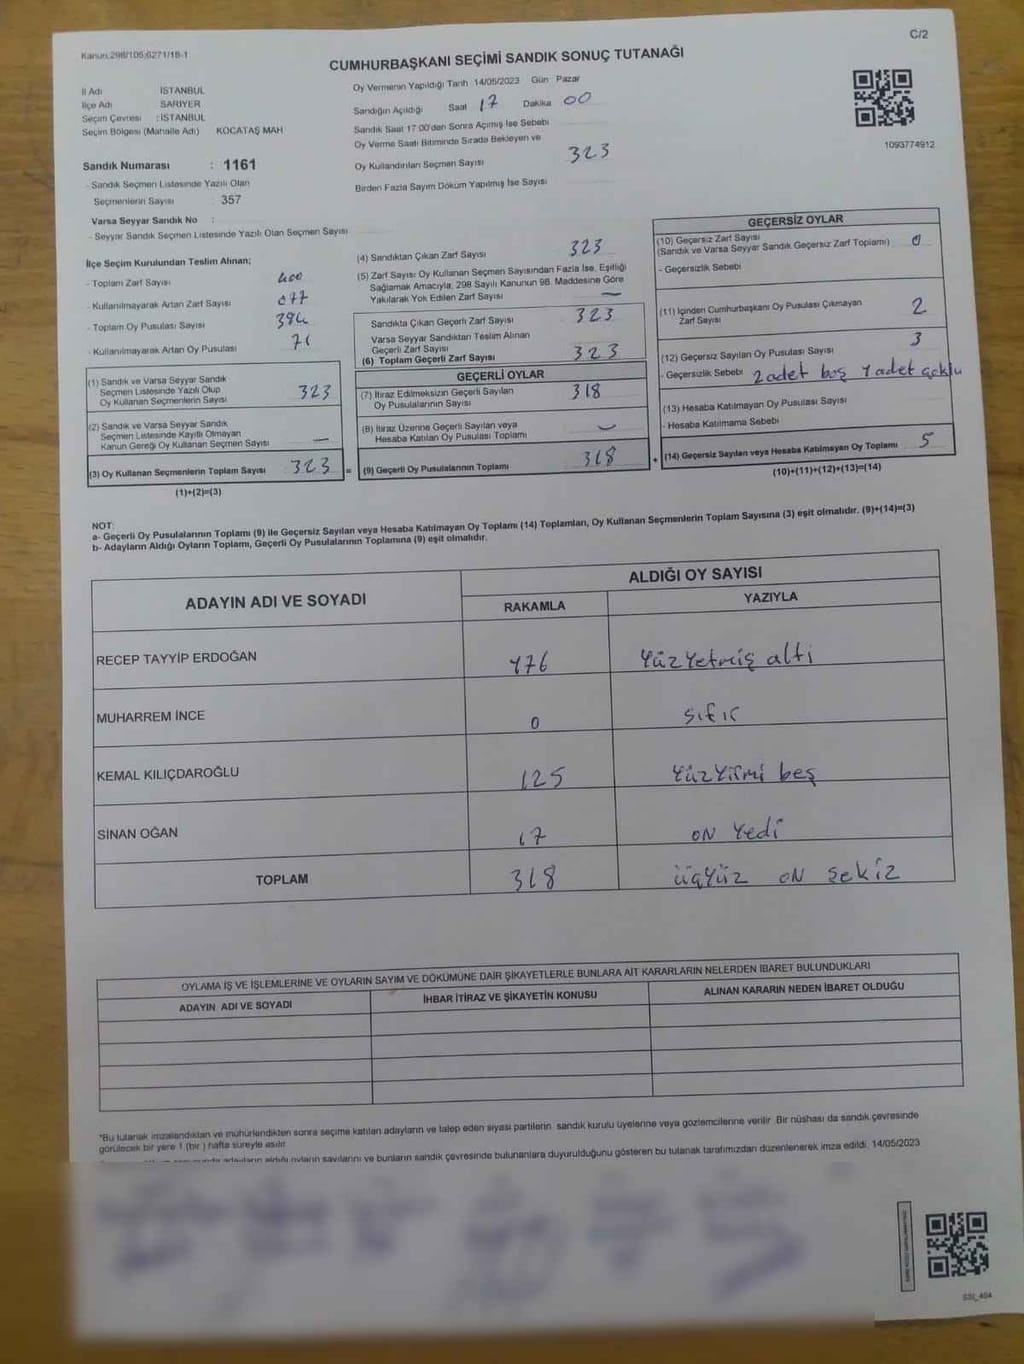 Kanun.298/105;6271/18-1
C/2
CUMHURBAŞKANI SEÇİMİ SANDIK SONUÇ TUTANAĞI
İl Adı İSTANBUL
İlçe Adı SARIYER
Seçim Çevresi : İSTANBUL
Seçim Bölgesi (Mahalle Adı) KOCATAŞ MAH
Sandık Numarası : 1161
- Sandık Seçmen Listesinde Yazılı Olan
Seçmenlerin Sayısı : 357
Varsa Seyyar Sandık No :
- Seyyar Sandık Seçmen Listesinde Yazılı Olan Seçmen Sayısı
Oy Vermenin Yapıldığı Tarih 14/05/2023 Gün Pazar
Sandığın Açıldığı Saat 17 Dakika 00
Sandık Saat 17:00'den Sonra Açımış İse Sebebi
Oy Verme Saati Bitiminde Sırada Bekleyen ve
Oy Kullandırılan Seçmen Sayısı 323
Birden Fazla Sayım Döküm Yapılmış İse Sayısı
1093774912
İlçe Seçim Kurulundan Teslim Alınan;
- Toplam Zarf Sayısı 400
- Kullanılmayarak Artan Zarf Sayısı 077
- Toplam Oy Pusulası Sayısı 394
- Kullanılmayarak Artan Oy Pusulası 71
(1) Sandık ve Varsa Seyyar Sandık
Seçmen Listesinde Yazılı Olup
Oy Kullanan Seçmenlerin Sayısı 323
(2) Sandık ve Varsa Seyyar Sandık
Seçmen Listesinde Kayıtlı Olmayan
Kanun Gereği Oy Kullanan Seçmen Sayısı —
(3) Oy Kullanan Seçmenlerin Toplam Sayısı 323 =
(1)+(2)=(3)
(4) Sandıktan Çıkan Zarf Sayısı 323
(5) Zarf Sayısı Oy Kullanan Seçmen Sayısından Fazla İse, Eşitliği
Sağlamak Amacıyla, 298 Sayılı Kanunun 98. Maddesine Göre
Yakılarak Yok Edilen Zarf Sayısı —
Sandıkta Çıkan Geçerli Zarf Sayısı 323
Varsa Seyyar Sandıktan Teslim Alınan
Geçerli Zarf Sayısı
(6) Toplam Geçerli Zarf Sayısı 323
GEÇERLİ OYLAR
(7) İtiraz Edilmeksizin Geçerli Sayılan
Oy Pusulalarının Sayısı 318
(8) İtiraz Üzerine Geçerli Sayılan veya
Hesaba Katılan Oy Pusulası Toplamı —
(9) Geçerli Oy Pusulalarının Toplamı 318 +
GEÇERSİZ OYLAR
(10) Geçersiz Zarf Sayısı
(Sandık ve Varsa Seyyar Sandık Geçersiz Zarf Toplamı) 0
- Geçersizlik Sebebi
(11) İçinden Cumhurbaşkanı Oy Pusulası Çıkmayan
Zarf Sayısı 2
(12) Geçersiz Sayılan Oy Pusulası Sayısı 3
- Geçersizlik Sebebi 2 adet boş 1 adet
(13) Hesaba Katılmayan Oy Pusulası Sayısı
- Hesaba Katılmama Sebebi
(14) Geçersiz Sayılan veya Hesaba Katılmayan Oy Toplamı 5
(10)+(11)+(12)+(13)=(14)
NOT:
a- Geçerli Oy Pusulalarının Toplamı (9) ile Geçersiz Sayılan veya Hesaba Katılmayan Oy Toplamı (14) Toplamları, Oy Kullanan Seçmenlerin Toplam Sayısına (3) eşit olmalıdır. (9)+(14)=(3)
b- Adayların Aldığı Oyların Toplamı, Geçerli Oy Pusulalarının Toplamına (9) eşit olmalıdır.
ADAYIN ADI VE SOYADI
ALDIĞI OY SAYISI
RAKAMLA YAZIYLA
RECEP TAYYİP ERDOĞAN 176 Yüzyetmiş altı
MUHARREM İNCE 0 sıfır
KEMAL KILIÇDAROĞLU 125 Yüzyirmi beş
SİNAN OĞAN 17 ON Yedi
TOPLAM 318 üçyüz ON Sekiz
OYLAMA İŞ VE İŞLEMLERİNE VE OYLARIN SAYIM VE DÖKÜMÜNE DAİR ŞİKAYETLERLE BUNLARA AİT KARARLARIN NELERDEN İBARET BULUNDUKLARI
ADAYIN ADI VE SOYADI İHBAR İTİRAZ VE ŞİKAYETİN KONUSU ALINAN KARARIN NEDEN İBARET OLDUĞU
*Bu tutanak imzalandıktan ve mühürlendikten sonra seçime katılan adayların ve talep eden siyasi partilerin sandık kurulu üyelerine veya gözlemcilerine verilir Bir nüshası da sandık çevresinde
görülecek bir yere 1 (bir) hafta süreyle asılır
aldığı oyların sayılarını ve bunların sandık çevresinde bulunanlara duyurulduğunu gösteren bu tutanak tarafımızdan düzenlenerek imza edildi. 14/05/2023
SSI_404